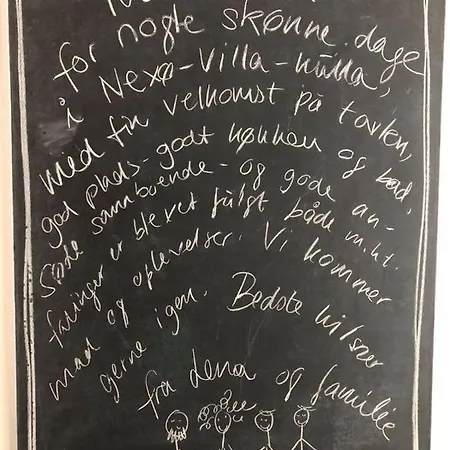 for nogle skønne dage
i Nexø-Villa-kulla,
med fin velkomst på tavlen,
god plads - godt køkken og bad,
Søde samboende - og gode an-
falinger er blevet fulgt både m.h.t.
mad og oplevelser. Vi kommer
gerne igen. Bedste hilsner
fra dena og familie